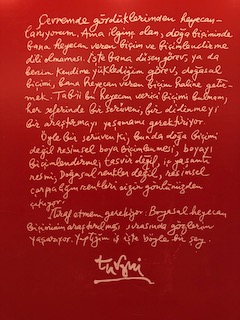 Çevremde gördüklerimden heyecan-
lanıyorum. Ama ilginç olan, doğa biçiminde
bana heyecan veren biçim ve biçimlendirme
dili olması. İşte bana düşen görev, ya da
benim kendime yüklediğim görev, doğasal
biçimi, bana heyecan veren biçim haline getir-
mek. Tabii bu heyecan verici biçimi bulmam,
her seferinde bir serüven, bir didinmeyi
bir araştırmayı yaşamamı gerektiriyor.
Öyle bir serüven ki, bunda doğa biçimi
değil resimsel boya biçimlenmesi, boyayı
biçimlendirme; tasvir değil, iç yaşantı
resmi, Doğasal renkler değil, resimsel
çarpıtılmış renkleri sizin gönlünüzden
çıkıyor!
İtiraf etmem gerekiyor. Boyasal heyecan
biçiminin araştırılması sırasında gözlerim
yaşarıyor. Yaptığım iş işte böyle bir şey.